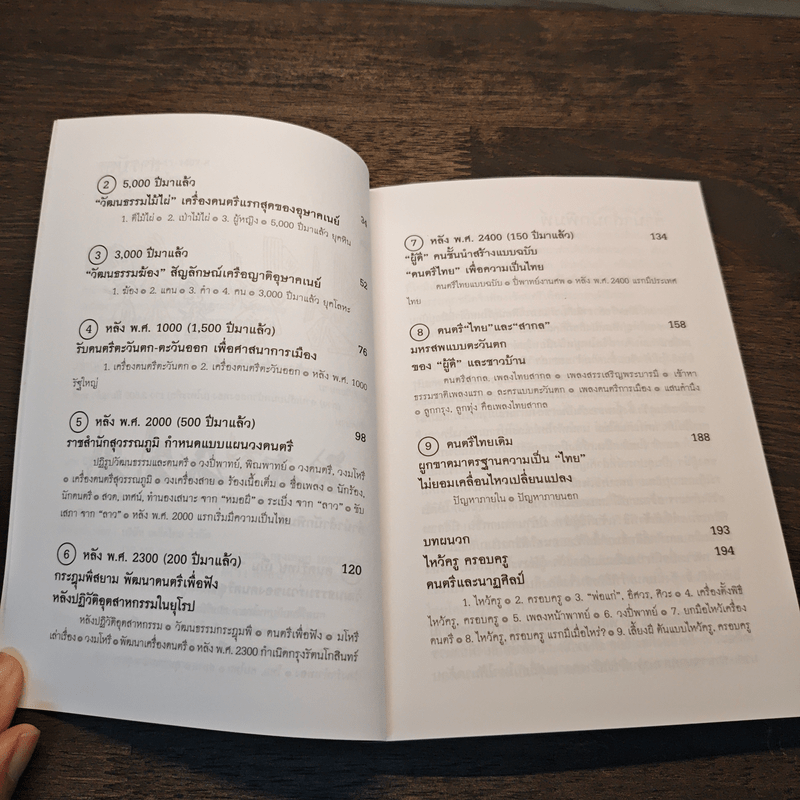 2 5,000 ปีมาแล้ว
"วัฒนธรรมไม้ไผ่" เครื่องดนตรีแรกสุดของอุษาคเนย์ 34
1. ตีไม้ไผ่ ๏ 2. เป่าไม้ไผ่ ๏ 3. ผู้หญิง ๏ 5,000 ปีมาแล้ว ยุคหิน
3 3,000 ปีมาแล้ว
"วัฒนธรรมฆ้อง" สัญลักษณ์เครือญาติอุษาคเนย์ 52
1. ฆ้อง ๏ 2. แคน ๏ 3. คำ ๏ 4. คน ๏ 3,000 ปีมาแล้ว ยุคโลหะ
4 หลัง พ.ศ. 1000 (1,500 ปีมาแล้ว)
รับดนตรีตะวันตก-ตะวันออก เพื่อศาสนาการเมือง 76
1. เครื่องดนตรีตะวันตก ๏ 2. เครื่องดนตรีตะวันออก ๏ หลัง พ.ศ. 1000
รัฐใหญ่
5 หลัง พ.ศ. 2000 (500 ปีมาแล้ว)
ราชสำนักสุวรรณภูมิ กำหนดแบบแผนวงดนตรี 98
ปฏิรูปวัฒนธรรมและดนตรี ๏ วงปี่พาทย์, พิณพาทย์ ๏ วงดนตรี, วงมโหรี
๏ เครื่องดนตรีสุวรรณภูมิ ๏ วงเครื่องสาย ๏ ร้องเนื้อเต็ม ๏ ชื่อเพลง ๏ นักร้อง,
นักดนตรี ๏ สวด, เทศน์, ทำนองเสนาะ จาก "หมอผี" ๏ ระเบ็ง จาก "ลาว" ๏ ขับ
เสภา จาก "ลาว" ๏ หลัง พ.ศ. 2000 แรกเริ่มมีความเป็นไทย
6 หลัง พ.ศ. 2300 (200 ปีมาแล้ว) 120
กระฎุมพีสยาม พัฒนาดนตรีเพื่อฟัง
หลังปฏิวัติอุตสาหกรรมในยุโรป
หลังปฏิวัติอุตสาหกรรม ๏ วัฒนธรรมกระฎุมพี ๏ ดนตรีเพื่อฟัง ๏ มโหรี
เล่าเรื่อง ๏ วงมโหรี ๏ พัฒนาเครื่องดนตรี ๏ หลัง พ.ศ. 2300 กำเนิดกรุงรัตนโกสินทร์
7 หลัง พ.ศ. 2400 (150 ปีมาแล้ว) 134
"ผู้ดี" คนชั้นนำสร้างแบบฉบับ
"ดนตรีไทย" เพื่อความเป็นไทย
ดนตรีไทยแบบฉบับ ๏ ปี่พาทย์งานศพ ๏ หลัง พ.ศ. 2400 แรกมีประเทศ
ไทย
8 ดนตรี"ไทย"และ"สากล" 158
มหรสพแบบตะวันตก
ของ "ผู้ดี" และชาวบ้าน
ดนตรีสากล, เพลงไทยสากล ๏ เพลงสรรเสริญพระบารมี ๏ เชิ้าหา
ธรรมชาติเพลงแรก ๏ ละครแบบตะวันตก ๏ เพลงดนตรีการเมือง ๏ แสนคำนึง
๏ ลูกกรุง, ลูกทุ่ง คือเพลงไทยสากล
9 ดนตรีไทยเดิม 188
ผูกขาดมาตรฐานความเป็น "ไทย"
ไม่ยอมเคลื่อนไหวเปลี่ยนแปลง
ปัญหาภายใน ๏ ปัญหาภายนอก
บทผนวก 193
ไหว้ครู ครอบครู 194
ดนตรีและนาฏศิลป์
1. ไหว้ครู ๏ 2. ครอบครู ๏ 3. "พ่อแก่", อิศวร, ศิวะ ๏ 4. เครื่องตั้งพิธี
ไหว้ครู, ครอบครู ๏ 5. เพลงหน้าพาทย์ ๏ 6. วงปี่พาทย์ ๏ 7. ยกมือไหว้เครื่อง
ดนตรี ๏ 8. ไหว้ครู, ครอบครู แรกมีเมื่อไหร่? ๏ 9. เลี้ยงผี ต้นแบบไหว้ครู, ครอบครู